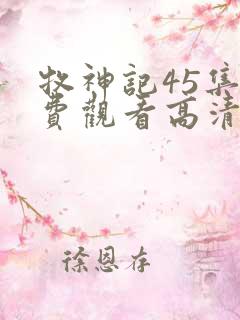 牧神記45集
費觀看高清
徐恩存